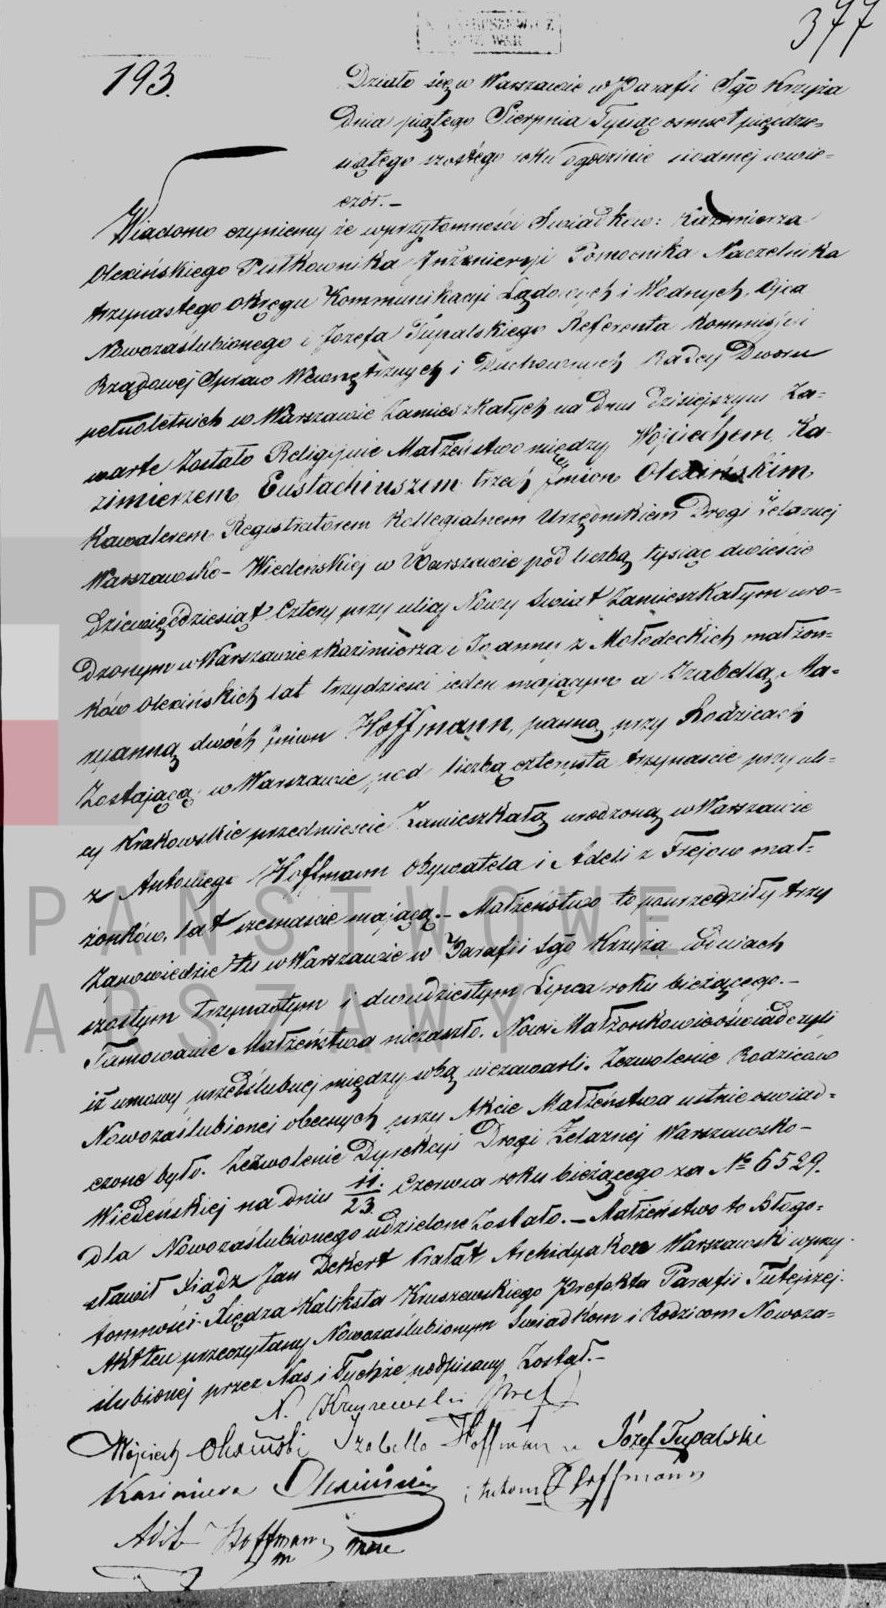 377
193.
Działo się w Warszawie w Parafii Sgo Krzyża
Dnia piątego Sierpnia Tysiąc ośmset pięćdzie-
siątego szóstego roku o godzinie siódmej wwie-
czór.-
Wiadomo czyniemy że wprzytomności Świadków: Kazimierza
Olexińskiego Pułkownika Inżenieryi Pomocnika Naczelnika
trzynastego Okręgu Kommunikacyi Lądowych i Wodnych, Ojca
Nowozaślubionego i Józefa Tupalskiego Referenta Kommissyi
Rządowej Spraw Wewnętrznych i Duchownych Radcy Dworu
pełnoletnich w Warszawie Zamieszkałych na dniu dzisiejszym Za-
warte Zostało Religijnie Małżeństwo między Wojciechem, Ka-
zimierzem, Eustachiuszem trzech Imion Olexińskim,
Kawalerem Registratorem Kollegialnem Urzędnikiem Drogi Żelaznej
Warszawsko-Wiedeńskiej w Warszawie pod liczbą tysiąc dwieście
dziewięćdziesiąt Cztery przy ulicy Nowy Świat Zamieszkałym uro-
dzonym w Warszawie z Kazimierza i Joanny z Mołodeckich małżon-
ków Olexińskich lat trzydzieści jeden mającym a Izabellą, Ma-
ryanną dwóch Imion Hoffmann, panną przy Rodzicach
Zostającą w Warszawie pod liczbą czterysta trzynaście przy uli-
cy Krakowskie przedmieście Zamieszkałą urodzoną w Warszawie
z Antoniego Hoffmann Obywatela i Adeli z Frejów mał-
żonków, lat szesnaście mającą.- Małżeństwo to poprzedziły trzy
Zapowiedzie tu w Warszawie w Parafii Sgo Krzyża w dniach
szóstym trzynastym i dwudziestym Lipca roku bieżącego.-
Tamowanie Małżeństwa niezaszło. Nowi Małżonkowie oświadczyli
iż umowy przedślubnej między sobą niezawarli. Zezwolenie Rodziców
Nowozaślubionej obecnych przy Akcie Małżeństwa ustnie oświad-
czone było. Zezwolenie Dyrekcyi Drogi Żelaznej Warszawsko-
Wiedeńskiej na dniu 11/23 Czerwca roku bieżącego za No 6529.
dla Nowozaślubionego udzielone Zostało.- Małżeństwo to Błogo-
sławił Xiądz Jan Dekert Prałat Archidyakon Warszawski wprzy-
tomności Xiędza Kaliksta Kruszewskiego Prefekta Parafii Tutejszej.
Akt ten przeczytany Nowozaślubionym Świadkom i Rodzicom Nowoza-
ślubionej przez Nas i Tychże podpisany Został.-
Wojciech Olexiński Izabella Hoffmann Józef Tupalski
Kazimierz Olexiński Antoni Hoffmann
Hoffmann
PAŃSTWOWE
ARSZAWY